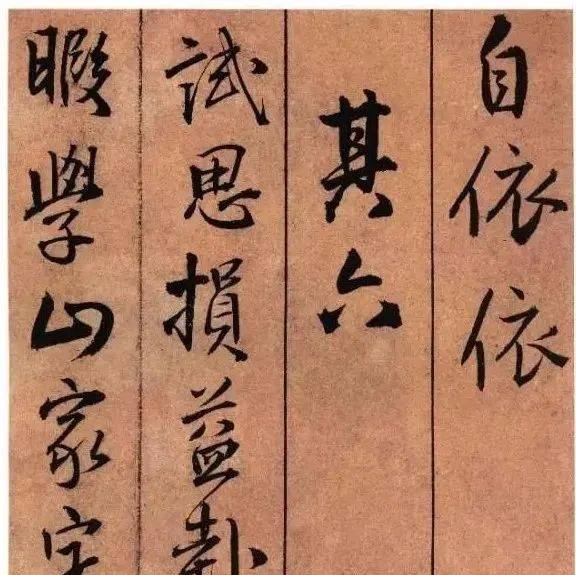 自依依
其六
試思損益卦
暇學山家字